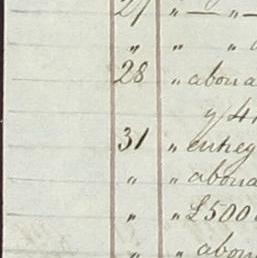 27 „ — „ —
„ „ „
28 „ abona
y/4
31 „ entreg
„ „ abona
„ „ £500
„ „ abon